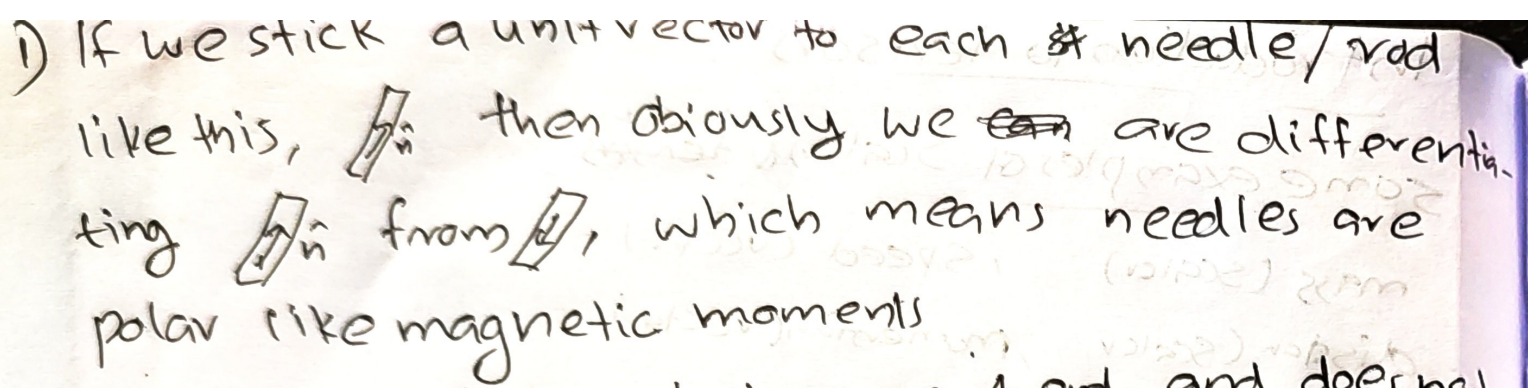 1) If we stick a unit vector to each needle/rod
like this, n̂ then obiously we are differentia-
ting n̂ from , which means needles are
polar like magnetic moments
and doesnot